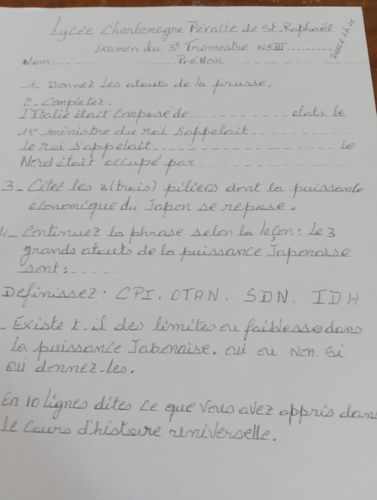 Lycée Charlemagne Péralte de St. Raphaël
Examen du 3e Trimestre NSIII
Durée 2h
Nom Prénom
1. Donnez les atouts de la prusse.
2. Completez.
l'Italie était composé de ........ etats le
1er ministre du roi s'appelait ........
le roi s'appelait ........ le
Nord était occupé par ........
3_ Citez les 3(trois) piliers dont la puissance
économique du Japon se repose.
4_ Continuez la phrase selon la leçon: le 3
grands atouts de la puissance Japonaise
sont: .....
Definissez: CPI. OTAN. SDN. IDH
_ Existe t-il des limites ou faiblesse dans
la puissance Japonaise. oui ou Non. si
oui donnez-les.
En 10 lignes dites ce que vous avez appris dans
le cours d'histoire universelle.